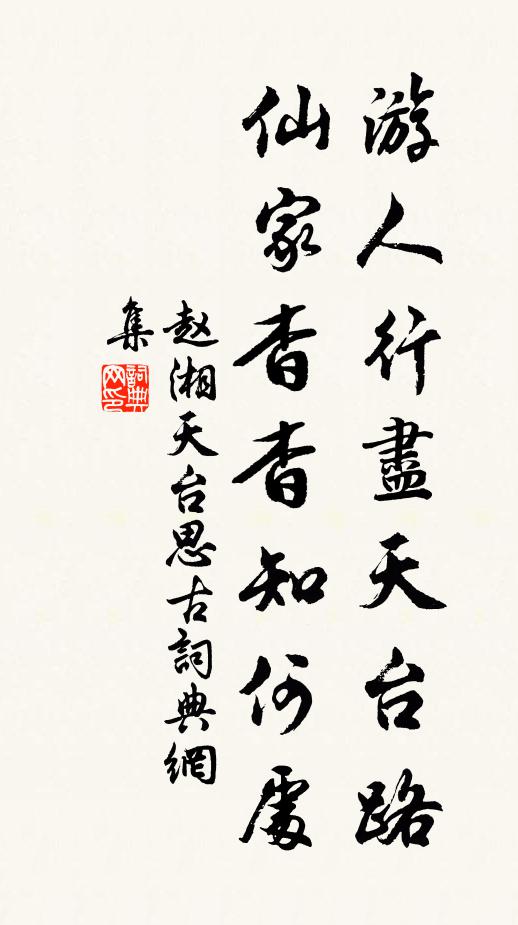 游人行盡天台路
仙家杳杳知何處
赵湘天台思古詞典網
集
詞典
网印